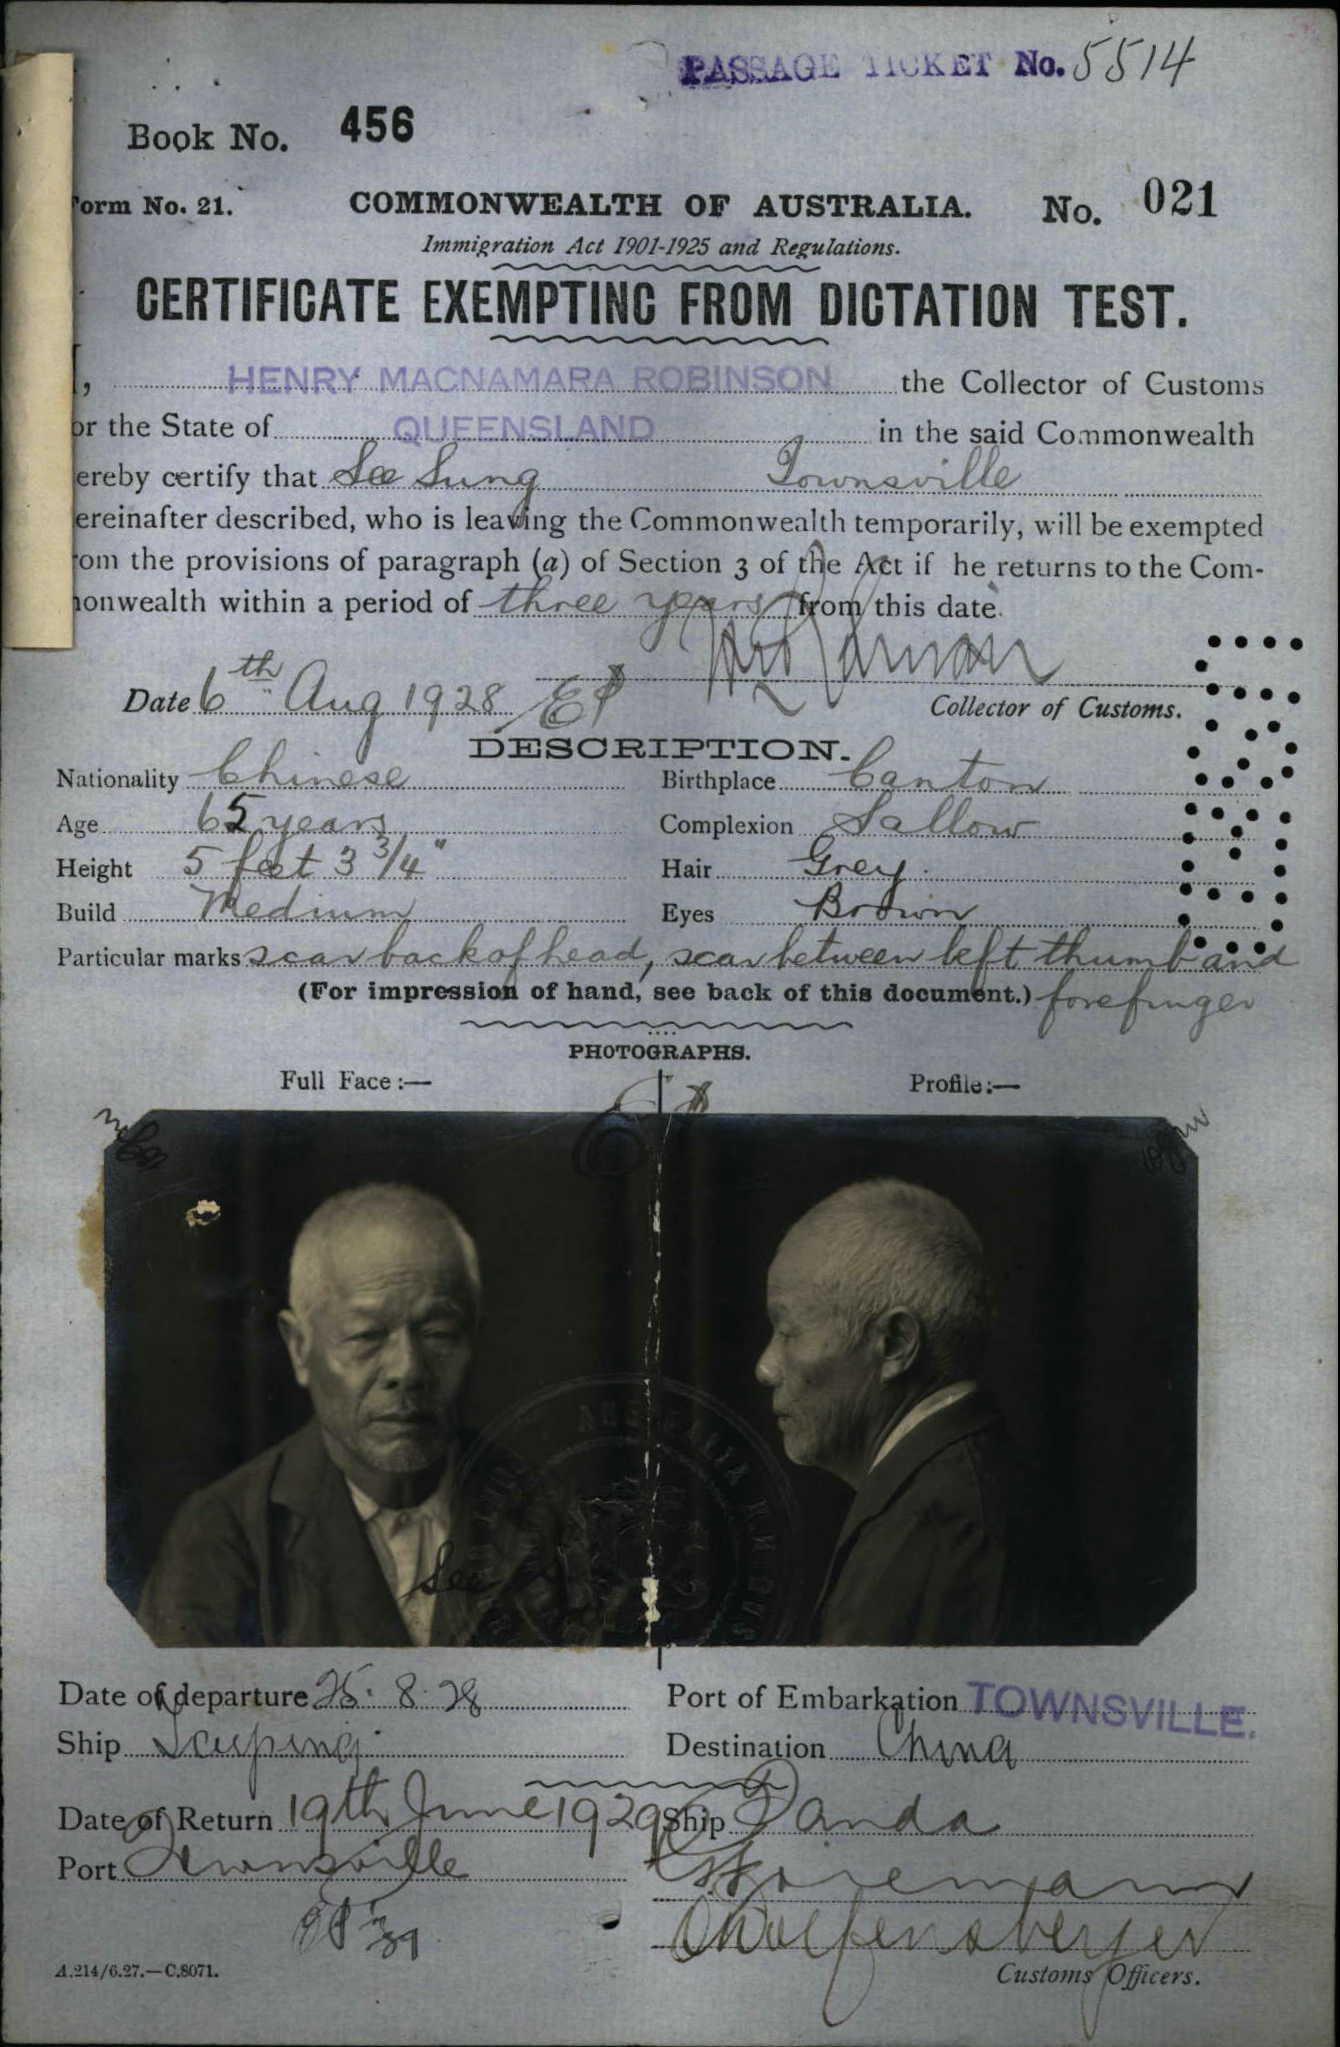 PASSAGE TICKET No. 5514
Book No. 456
Form No. 21. COMMONWEALTH OF AUSTRALIA. No. 021
Immigration Act 1901-1925 and Regulations.
CERTIFICATE EXEMPTING FROM DICTATION TEST.
I, HENRY MACNAMARA ROBINSON the Collector of Customs
or the State of QUEENSLAND in the said Commonwealth
ereby certify that See Sung Townsville
ereinafter described, who is leaving the Commonwealth temporarily, will be exempted
rom the provisions of paragraph (a) of Section 3 of the Act if he returns to the Com-
monwealth within a period of three years from this date.
Date 6th Aug 1928
Collector of Customs.
DESCRIPTION.
Nationality Chinese Birthplace Canton
Age 65 years Complexion Sallow
Height 5 feet 3 3/4" Hair Grey.
Build Medium Eyes Brown
Particular marks scar back of head, scar between left thumb and
(For impression of hand, see back of this document.) forefinger
PHOTOGRAPHS.
Full Face:— Profile:—
See
Date of departure 25.8.28 Port of Embarkation TOWNSVILLE.
Ship Taiping Destination China
Date of Return 19th June 1929 Ship Tanda
Port Townsville
A.214/6.27.—C.8071. Customs Officers.